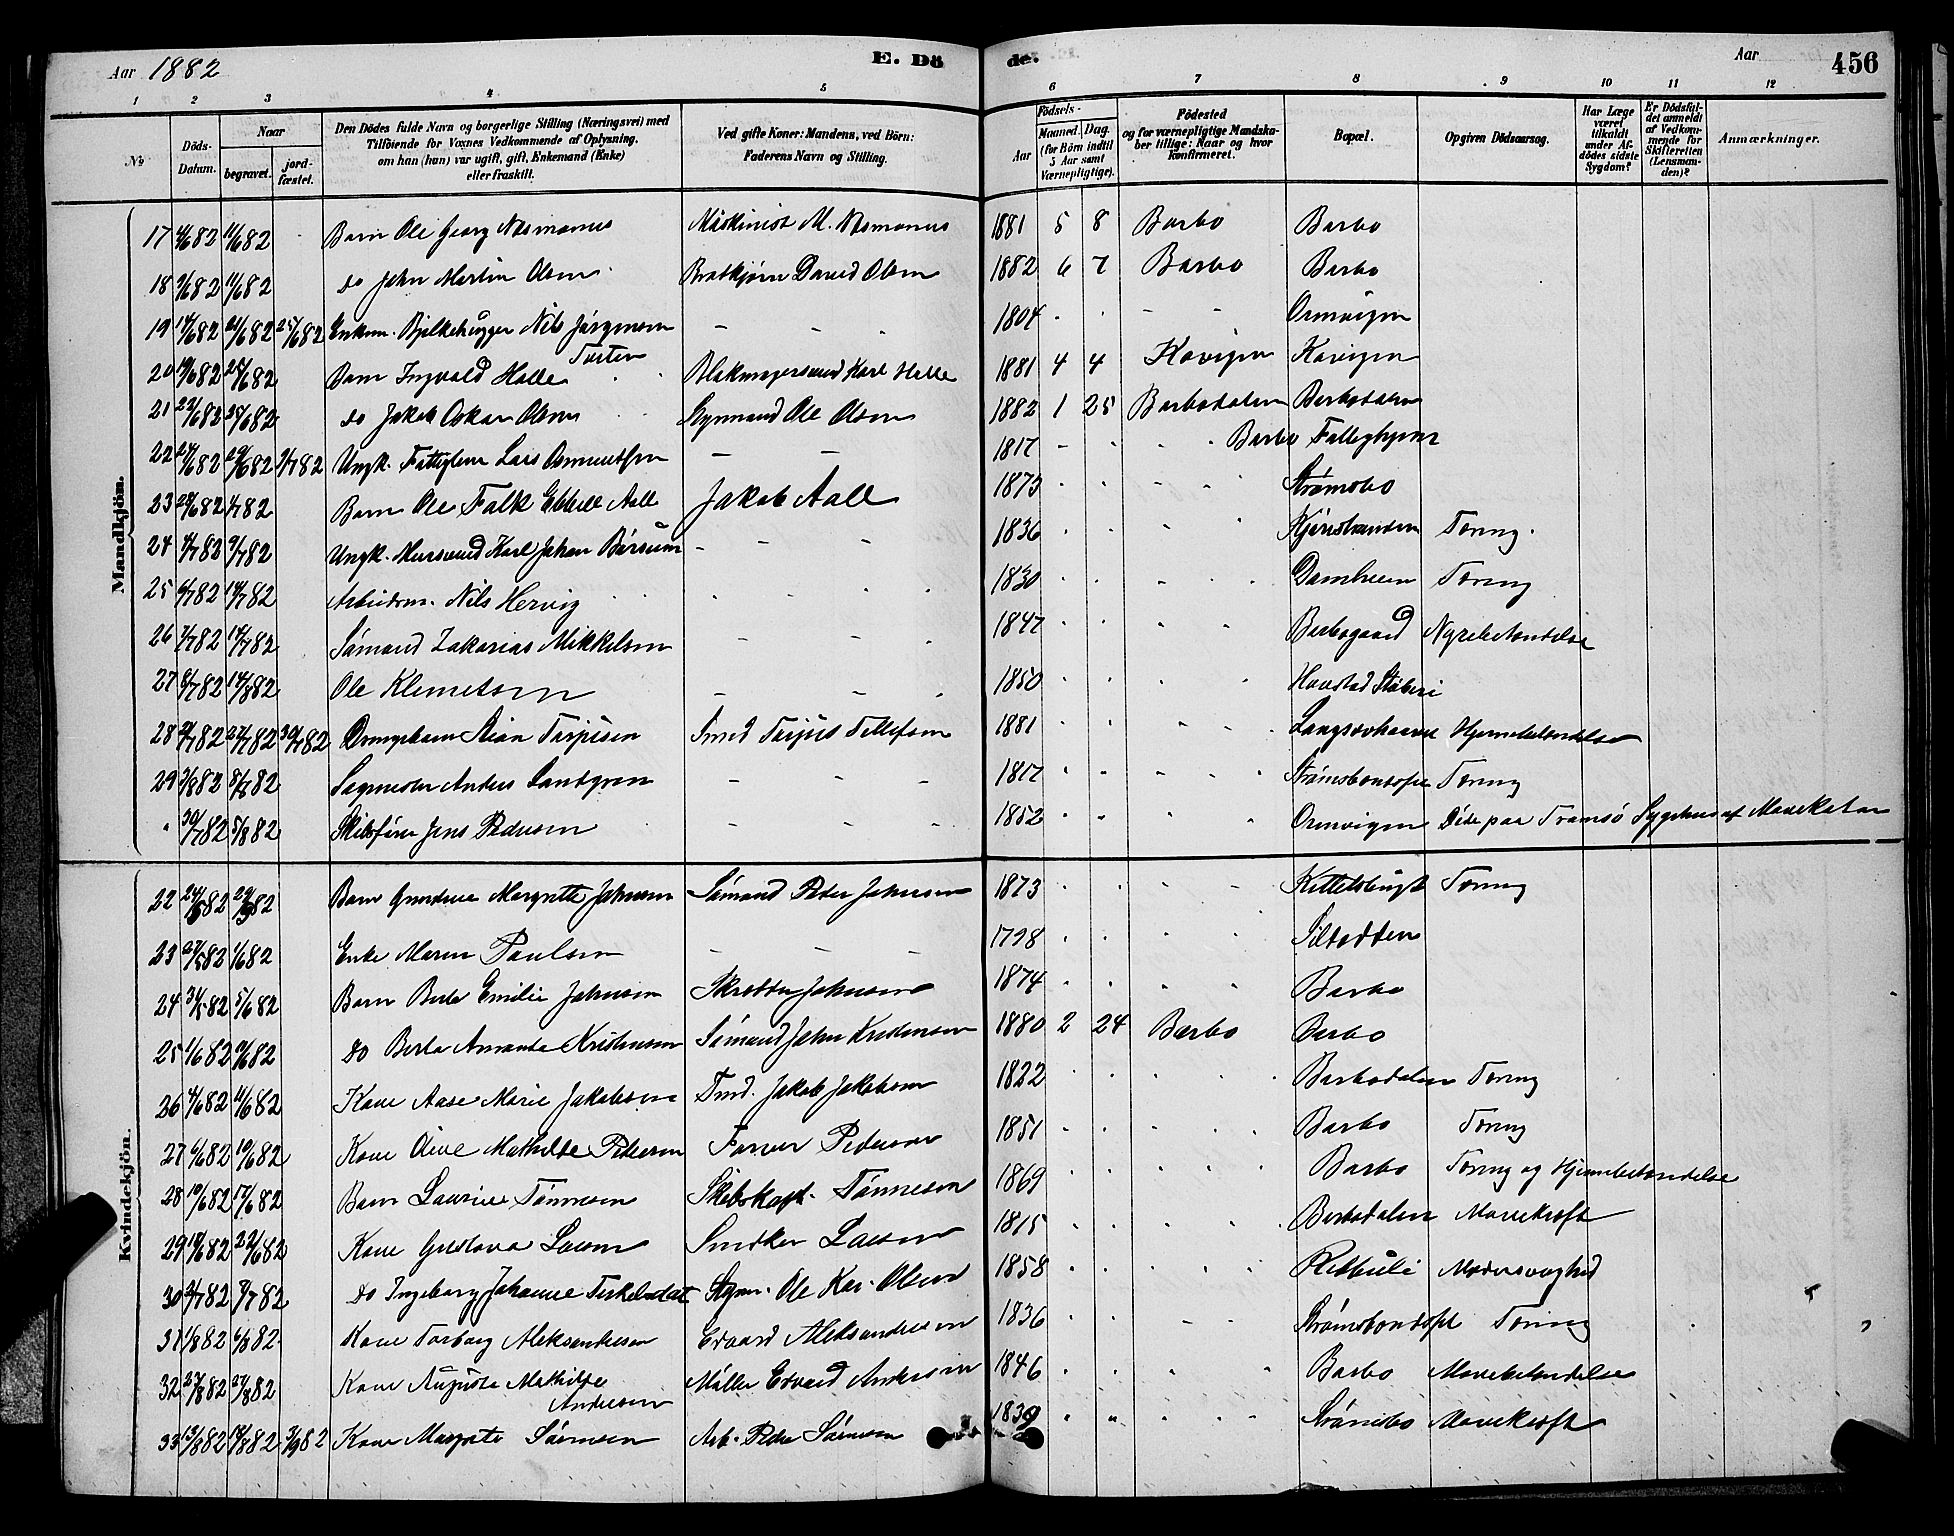 Aar 1882
E. Dö
de.
Aar
456
1 2 3 4 5 6 7 8 9 10 11 12
No
Döds-Datum.
Naar
begravet.
jord-fæstet.
Den Dödes fulde Navn og borgerlige Stilling (Næringsvei) med
Tilföiende for Voxnes Vedkommende af Oplysning,
om han (hun) var ugift, gift, Enkemand (Enke)
eller fraskilt.
Ved gifte Koner: Mandens, ved Börn:
Faderens Navn og Stilling.
Födsels-
Aar
Maaned.
Dag.
(for Börn indtil
5 Aar samt
Værnepligtige).
Födested
og for værnepligtige Mandska-
ber tillige: Naar og hvor
konfirmeret.
Bopæl.
Opgiven Dödsaarsag.
Har Læge
været
tilkaldt
under Af-
dödes sidste
Sygdom?
Er Dödsfal-
det anmeldt
af Vedkom-
mende for
Skifteretten
(Lensman-
den)?
Anmærkninger.
Mandkjön.
17 4/6 82 11/6 82 Barn Ole Georg Maskinist M. 1881 5 8 Barbo Barbo
18 9/6 82 11/6 82 do John Martin Olsen David Olsen 1882 6 7 Barbo Barbo
19 14/6 82 21/6 82 25/6 82 Enkem. Bjelkehugger Nils Jørgensen - - 1804 Ormvigen
20 19/6 82 25/6 82 Barn Ingvald Torsten Halle Karl Halle 1881 4 4 Kavigen Kavigen
21 22/6 82 25/6 82 do Jakob Oskar Olsen Styrmand Ole Olsen 1882 1 25 Barbodalen Barbodalen
22 24/6 82 29/6 82 9/7 82 Ungk. Fattiglem Lars Osmundsen - - 1817 Barbo Fattighjem
23 28/6 82 4/7 82 Barn Ole Falk Ebbell Aall Jakob Aall 1873 Strømsbo
24 4/7 82 9/7 82 Ungk. Mursvend Karl Johan Børsum - - - 1836 Kjøristranden Tæring.
25 6/7 82 14/7 82 Arbeidsm. Nils Hervig 1830 Damheien Tæring
26 7/7 82 14/7 82 Sømand Zakarias Mikkelsen - - 1847 Barbogaard Nyrebetændelse
27 8/7 82 14/8 82 Ole Klemetsen - - 1850 Havstad Støberi
28 82 27/7 82 30/7 82 Drengebarn Stian Terjesen Smed Terjes Tellefsen 1881 Hjernebetændelse
29 3/8 82 8/8 82 Sagmester Anders Landgren - - - 1817 Tæring
" 30/7 82 5/8 82 Skibsfører Jens Pedersen - - - 1852 Ormvigen Døde paa Tromsø Sygehus af Mavekatar
Kvindekjön.
22 24/5 82 29/5 82 Barn Gundine Margrethe Johnsen Sømand Peder Johnsen 1873 Kittelsbugt Tæring
23 27/5 82 1/6 82 Enke Maren Paulsen - - - 1798 Sildodden
24 31/5 82 5/6 82 Barn Berta Emilie Johnsen Skrædder Johnsen 1874 Barbo
25 1/6 82 9/6 82 do Berta Amanda Kristensen Sømand John Kristensen 1880 2 24 Barbo Barbo
26 4/6 82 11/6 82 Kone Aase Marie Jakobsen Tmd. Jakob Jakobsen 1822 Barbodalen Tæring
27 6/6 82 10/6 82 Kone Oline Mathilde Pedersen Farver Pedersen 1851 Barbo Tæring
28 10/6 82 17/6 82 Barn Laurine Tønnesen Skibskapt. Tønnesen 1869 Barbo Tæring og Hjernebetændelse
29 18/6 82 22/6 82 Kone Gustava Larsen Snedker Larsen 1815 Barbodalen Mavekræft
30 2/7 82 8/7 82 do Ingeborg Johanne Terkelsdat Styrm. Ole Kar. Olsen 1858
31 1/8 82 6/8 82 Kone Torborg Aleksandersen Edvard Aleksandersen 1836 Tæring
32 23/8 82 27/8 82 Kone Augusta Mathilde Andersen Møller Edvard Andersen 1846 Barbo Mavebetændelse
33 13/8 82 18/8 82 3/9 82 Kone Margrete Sørensen Arb. Peder Sørensen 1839 Strømsbo Mavekræft